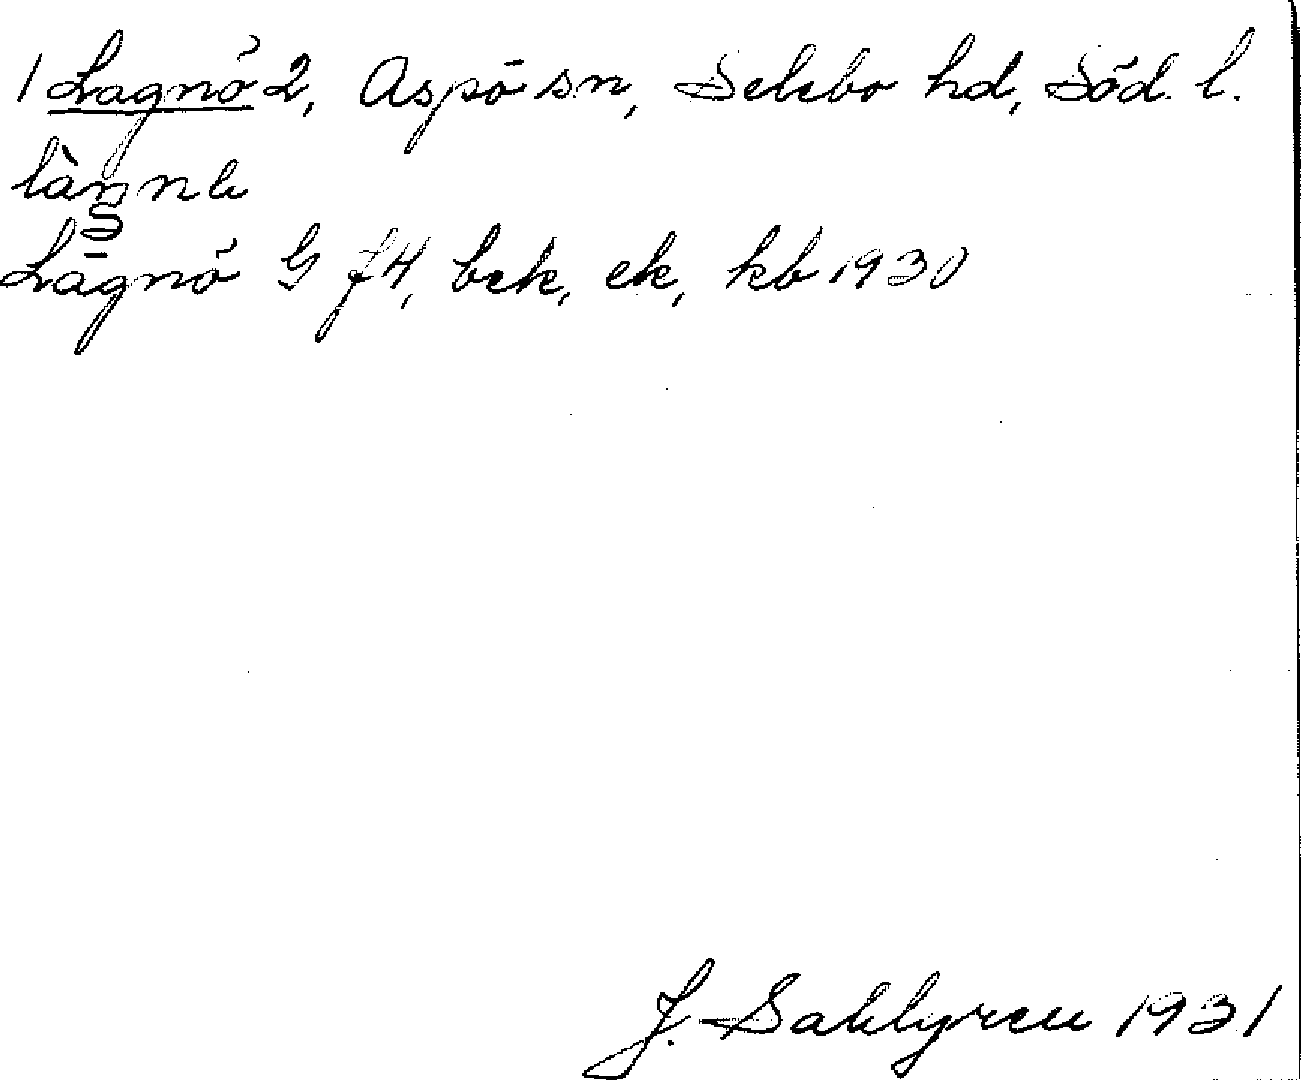 1 Lagnö 2, Aspö sn, Selebo hd, Söd. l.
Lagnö G f4, bek, ek, kb 1930
J. Sahlgren 1931